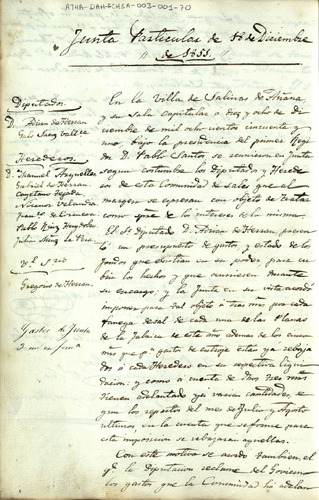 ATHA-DAH-FCHSA-003-001-70
Junta Particular de 18 de Diciembre
de 1851.
Diputados.
D. Adrian de Herran
Herederos.
D. Manuel
Gabriel de Herran
Cayetano Tejada
Pablo
Julian
Gregorio de Herran.
Gastos de Junta
En la Villa de Salinas de Añana
y su sala capitular a diez y ocho de Di
ciembre de mil ochocientos cincuenta y
uno bajo la presidencia del primer Regi
dor D. Pablo Santos se reunieron en Junta
segun costumbre los Diputados y Herede
ros de esta Comunidad de sales que al
margen se espresan con objeto de tratar
como de los intereses de la misma.
El Sr Diputado D. Adrian de Herran presen
tó un presupuesto de gastos y estado de los
fondos que existian en su poder para cu
brir los hechos y que ocurriesen durante
su encargo; y la Junta en su vista acordó
imponer para tal objeto a tres mrs por cada
fanega de sal de cada una de las
de la fabrica de este año, ademas de los cinco
mrs que pr gastos de están ya rebaja
dos á cada Heredero en su respectiva liqui
dacion; y como á cuenta de dhos tres mrs
tienen adelantado ya varias cantidades, se
gun los repartos del mes de Julio y Agosto
ultimos, en la cuenta que se forme para
esta imposicion se rebajaran aquellas.
Con este motivo se acordó tambien, el
qe la Diputacion reclame del Gobierno
los gastos que la Comunidad ha adelan